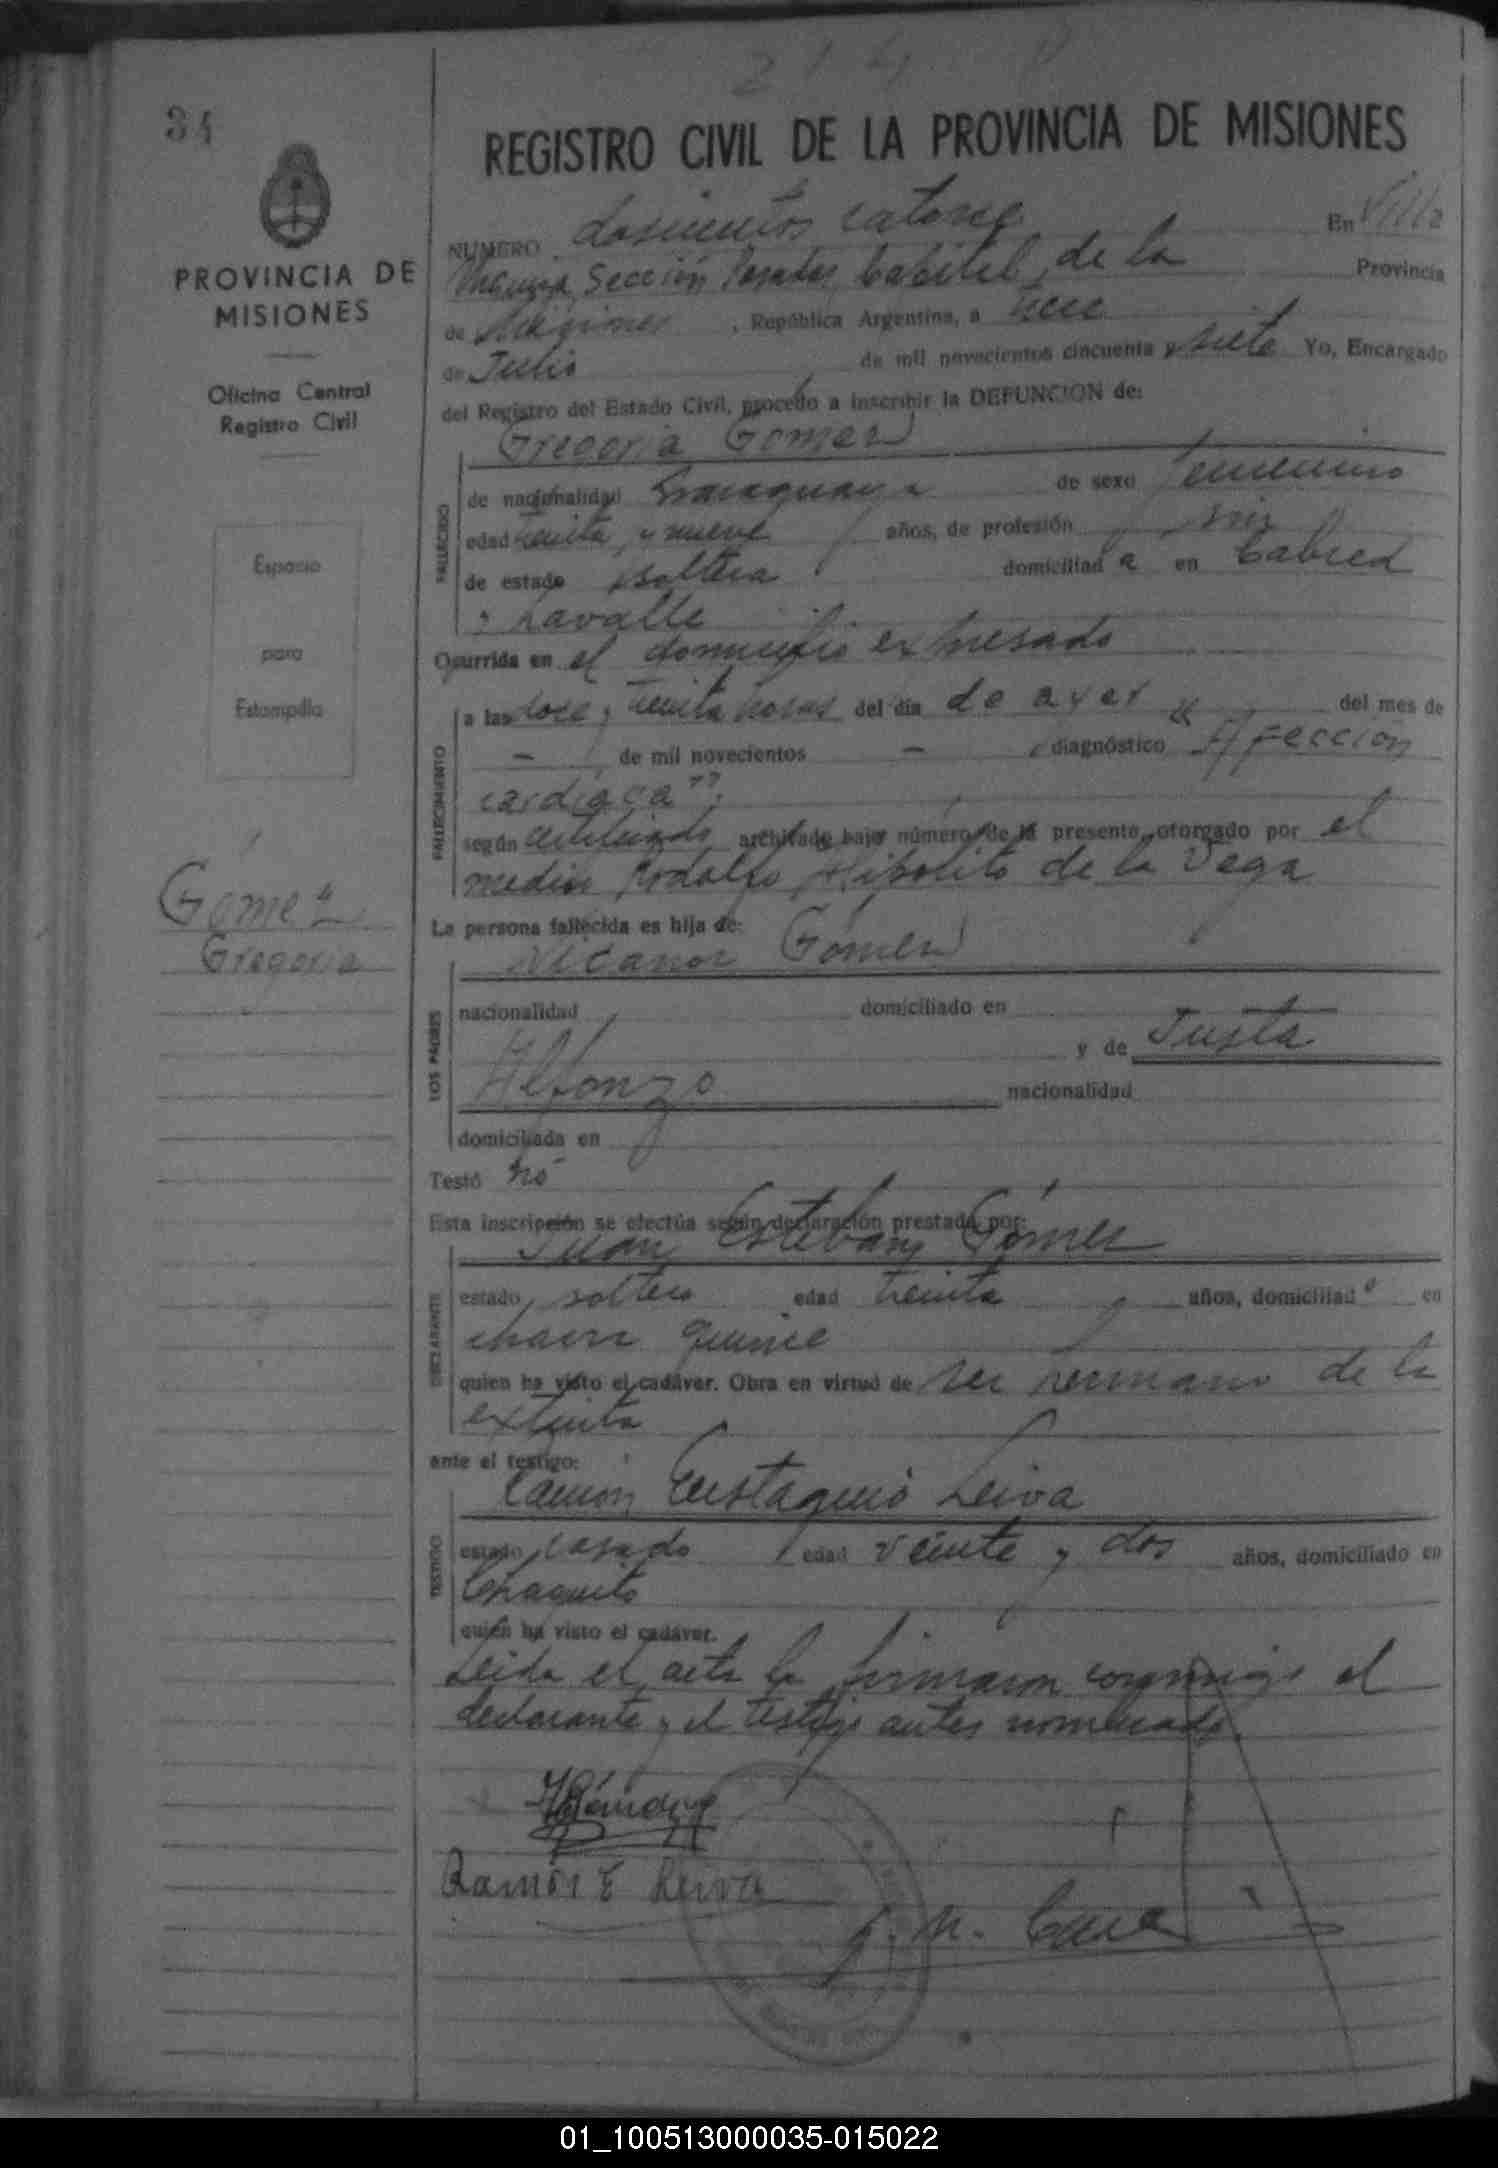 214
34
REGISTRO CIVIL DE LA PROVINCIA DE MISIONES
PROVINCIA DE
MISIONES
Oficina Central
Registro Civil
Espacio
para
Estampilla
Gómez
Gregoria
NUMERO dosientos catorce En Villa
Sección Posadas Capital de la Provincia
de Misiones, República Argentina, a
de Julio de mil novecientos cincuenta y siete Yo, Encargado
del Registro del Estado Civil, procedo a inscribir la DEFUNCION de:
Gregoria Gómez
FALLECIDO
de nacionalidad Paraguaya de sexo femenino
edad treinta y nueve años, de profesión
de estado soltera domiciliad a en Cabred
y Lavalle
Ocurrida en el domicilio expresado
FALLECIMIENTO
a las doce y treinta horas del día de ayer del mes de
— de mil novecientos — diagnóstico "Afección
cardíaca";
según certificado archivado bajo número de la presente, otorgado por el
medico Rodolfo Hipolito de la Vega
La persona fallecida es hija de:
Nicanor Gómez
LOS PADRES
nacionalidad domiciliado en
y de Justa
Alfonzo nacionalidad
domiciliada en
Testó no
Esta inscripción se efectúa según declaración prestada por:
Juan Esteban Gómez
DECLARANTE
estado soltero edad treinta años, domiciliad o en
chacra quince
quien ha visto el cadáver. Obra en virtud de ser hermano de la
extinta
ante el testigo:
Ramón Eustaquio Leiva
TESTIGO
estado casado edad veinte y dos años, domiciliado en
Chaquito
quien ha visto el cadáver.
Leida el acta la firmaron conmigo el
declarante y el testigo antes nombrado.
Ramón E Leiva
01_100513000035-015022